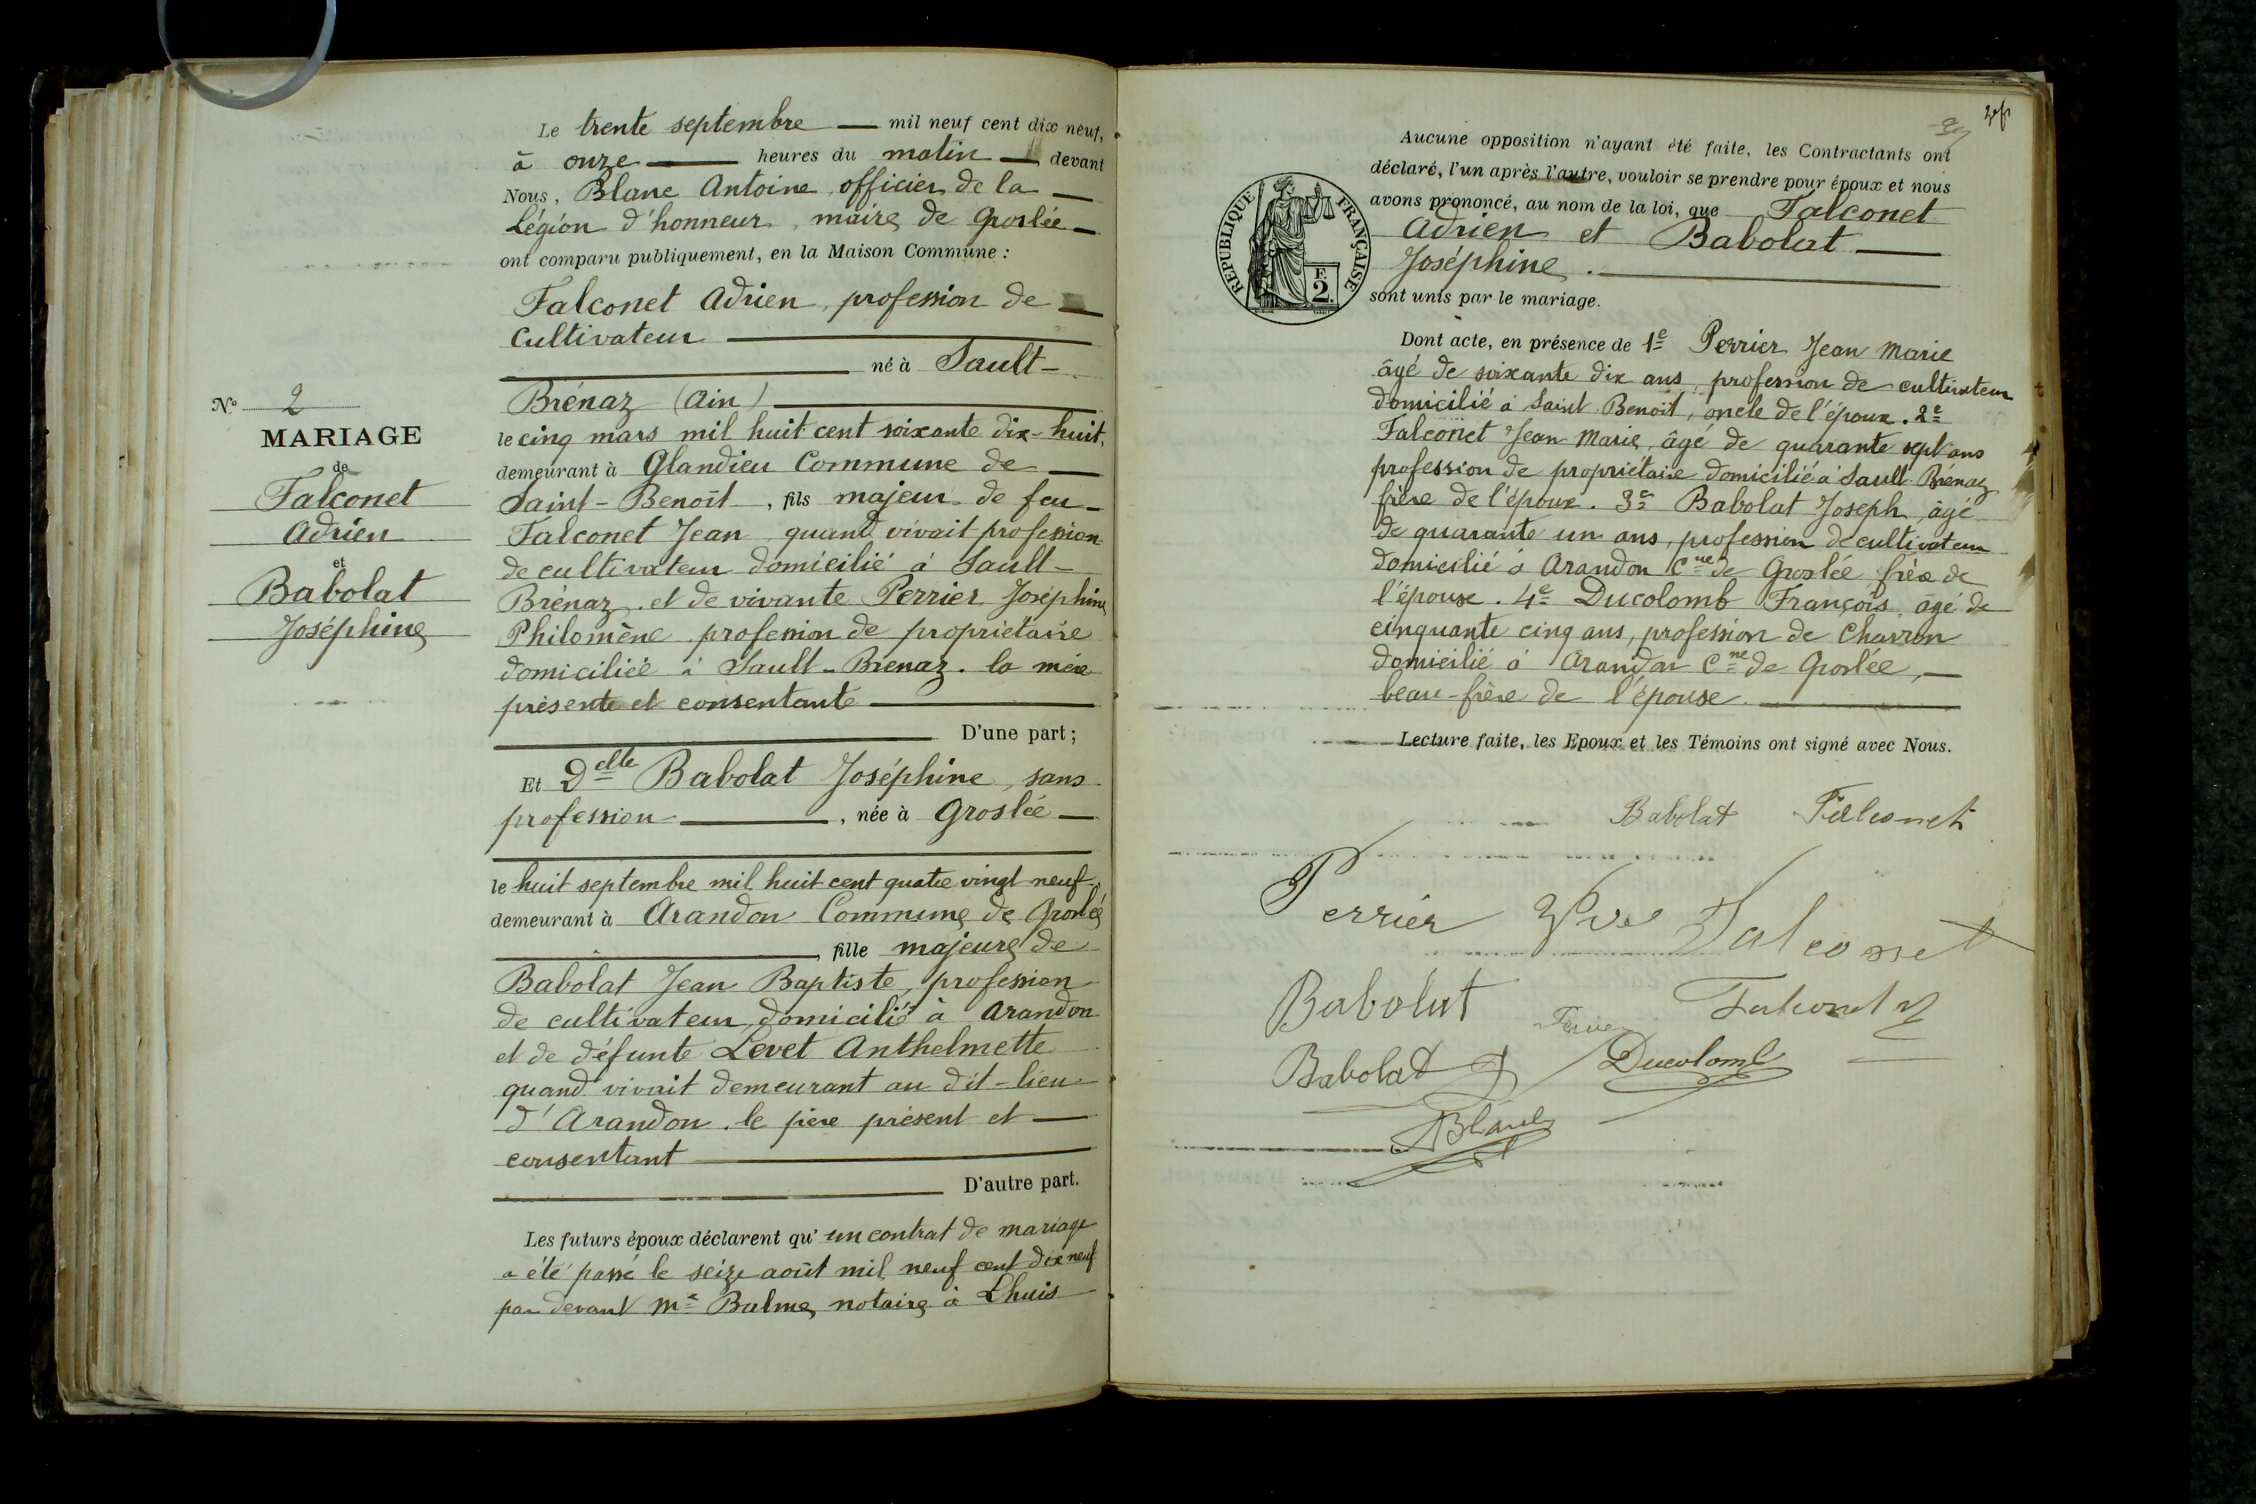 Le trente septembre mil neuf cent dix neuf,
à onze heures du matin devant
Nous, Blanc Antoine, officier de la
Légion d'honneur, maire de Groslée
ont comparu publiquement, en la Maison Commune :
Falconet Adrien, profession de
Cultivateur
né à Sault-
Brénaz (Ain)
le cinq mars mil huit cent soixante dix-huit,
demeurant à Glandieu Commune de
Saint-Benoît, fils majeur de feu
Falconet Jean quand vivait profession
de cultivateur domicilié à Sault-
Brénaz, et de vivante Perrier Joséphine
Philomène profession de propriétaire
domiciliée à Sault-Brenaz. la mère
présente et consentante
D'une part ;
Et Delle Babolat Joséphine, sans
profession, née à Groslée
le huit septembre mil huit cent quatre vingt neuf
demeurant à Arandon Commune de Groslée
fille majeure de
Babolat Jean Baptiste, profession
de cultivateur, domicilié à Arandon
et de défunte Levet Anthelmette
quand vivait demeurant au dit-lieu
d'Arandon. le père présent et
consentant
D'autre part.
Les futurs époux déclarent qu'un contrat de mariage
a été passé le seize août mil neuf cent dix neuf
par devant Me Balme, notaire à Lhuis
No 2
MARIAGE
de
Falconet
Adrien
et
Babolat
Joséphine
Aucune opposition n'ayant été faite, les Contractants ont
déclaré, l'un après l'autre, vouloir se prendre pour époux et nous
avons prononcé, au nom de la loi, que Falconet
Adrien et Babolat
Joséphine.
sont unis par le mariage.
RÉPUBLIQUE FRANÇAISE
F.
2.
Dont acte, en présence de 1e Perrier Jean Marie
âgé de soixante dix ans, profession de cultivateur
domicilié à Saint Benoît, oncle de l'époux. 2e
Falconet Jean Marie, âgé de quarante sept ans
profession de propriétaire domicilié à Sault-Brénaz
frère de l'époux. 3e Babolat Joseph, âgé
de quarante un ans, profession de cultivateur
domicilié à Arandon Cne de Groslée frère de
l'épouse. 4e Ducolomb François âgé de
cinquante cinq ans, profession de Charron
domicilié à Arandon Cne de Groslée,
beau-frère de l'épouse.
Lecture faite, les Epoux et les Témoins ont signé avec Nous.
Babolat Falconet
Perrier Vve Falconet
Babolat Falconet
Babolat Ducolomb
ABlanc